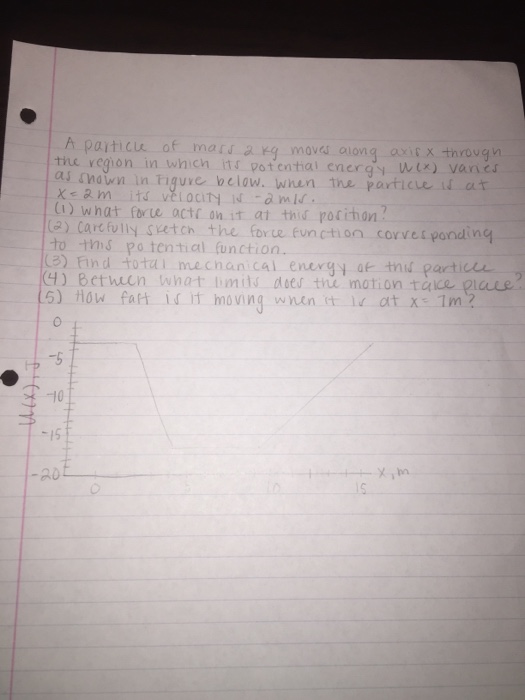 A particle of mass 2 kg moves along axis x through
the region in which its potential energy U(x) varies
as shown in Figure below. When the particle is at
x = 2m its velocity is -2m/s.
(1) what force acts on it at this position?
(2) Carefully sketch the force function corresponding
to this potential function.
(3) Find total mechanical energy of this particle
(4) Between what limits does the motion take place?
(5) How fast is it moving when it is at x = 7m?
0
-5
-10
-15
-20
U(x)
0
15
x, m